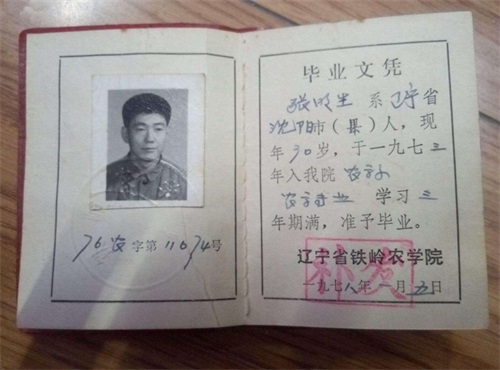 76农字第11074号
毕业文凭
张明生 系辽宁省
沈阳市(县)人，现
年30岁，于一九七三
年入我院农学系
农学专业 学习三
年期满，准予毕业。
辽宁省铁岭农学院
补发
一九七八年一月五日